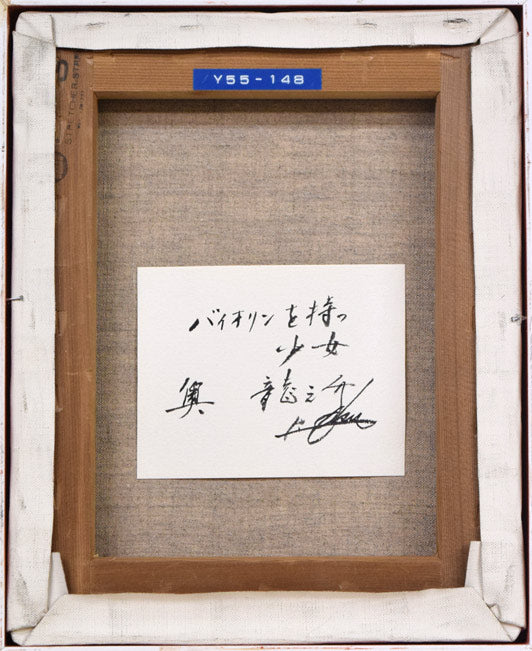 Y55-148
STRETCHER STAR
バイオリンを持つ
少女
奥 龍之介